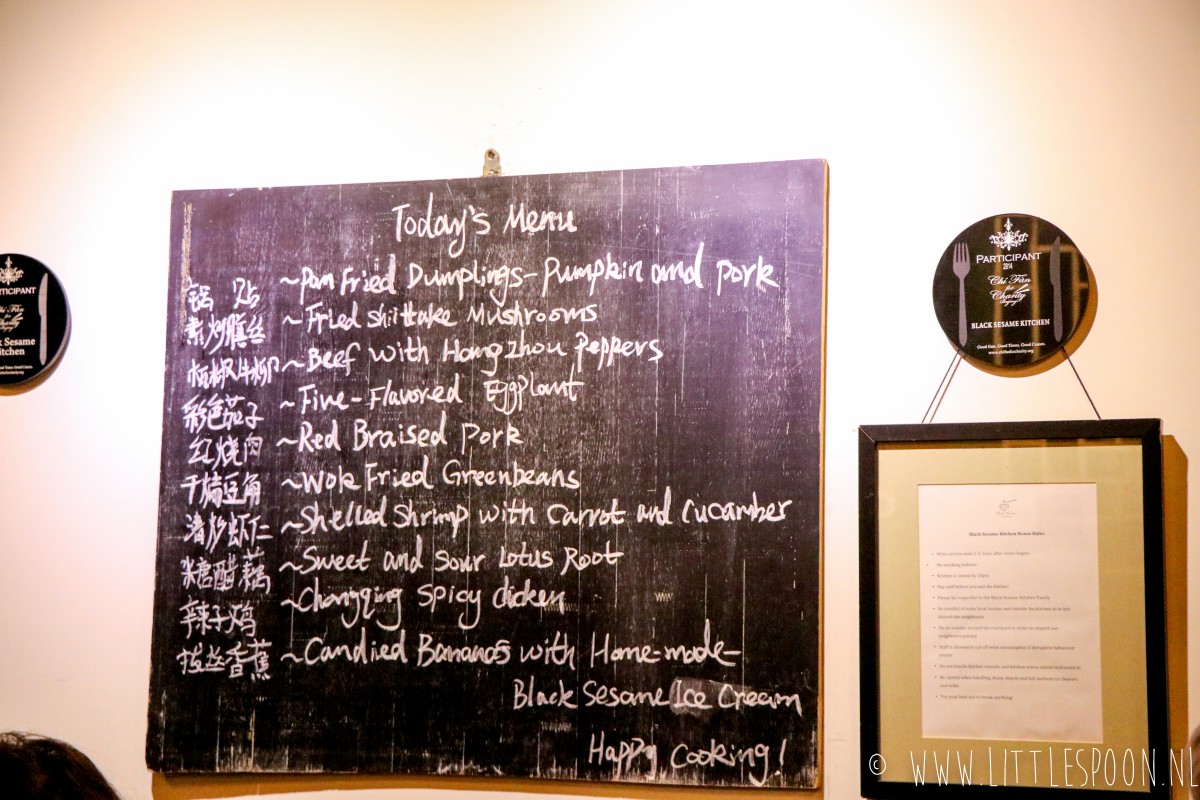 Today's Menu
锅贴 ~Pan Fried Dumplings- Pumpkin and pork
素炒鳝丝 ~Fried shiitake Mushrooms
杭椒牛柳 ~Beef with Hangzhou Peppers
彩色茄子 ~Five-Flavored Eggplant
红烧肉 ~Red Braised Pork
干煸豆角 ~Wok Fried Greenbeans
清炒虾仁 ~Shelled Shrimp with Carrot and Cucumber
糖醋藕 ~Sweet and Sour Lotus Root
辣子鸡 ~Chongqing Spicy chicken
拔丝香蕉 ~Candied Bananas with Home-made-
Black Sesame Ice Cream
Happy Cooking!
PARTICIPANT
Chi Fan
for
Charity
k Sesame
Kitchen
PARTICIPANT
2014
Chi Fan
for
Charity
BLACK SESAME KITCHEN
Good Fun. Good Times. Good Causes.
www.chifanforcharity.org
Black Sesame Kitchen House Rules
No smoking indoors
Kitchen is closed by 10pm
© WWW.LITTLESPOON.NL